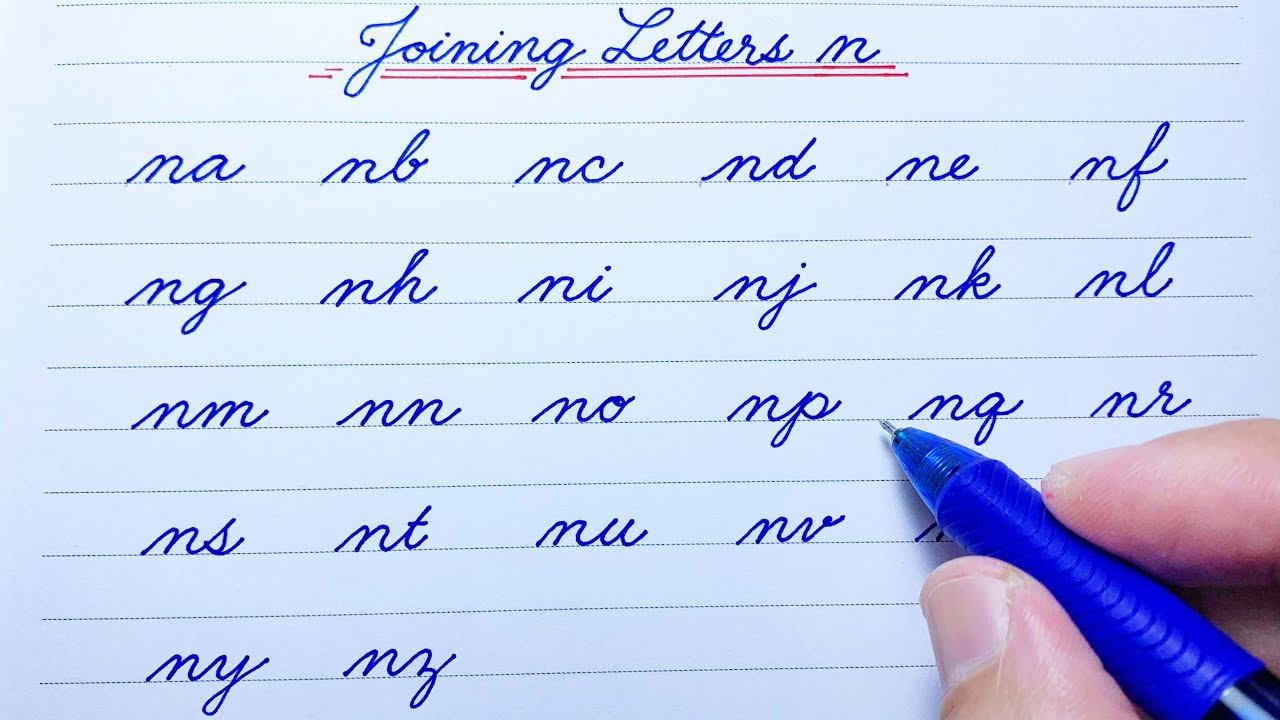 Joining Letters n
na nb nc nd ne nf
ng nh ni nj nk nl
nm nn no np nq nr
ns nt nu nv
ny nz